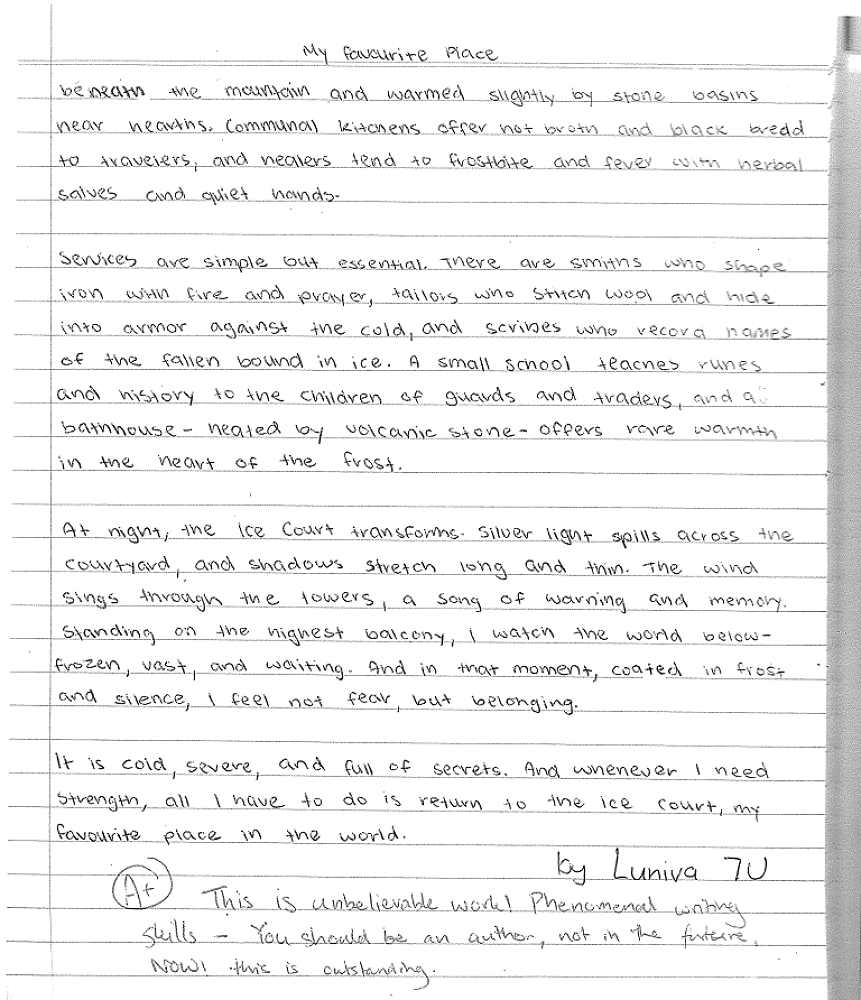 My favourite Place
beneath the mountain and warmed slightly by stone basins
near hearths. Communal kitchens offer hot broth and black bredd
to travelers, and healers tend to frostbite and fever with herbal
salves and quiet hands.
Services are simple but essential. There are smiths who shape
iron with fire and prayer, tailors who stitch wool and hide
into armor against the cold, and scribes who record names
of the fallen bound in ice. A small school teaches runes
and history to the children of guards and traders, and a
bathhouse - heated by volcanic stone - offers rare warmth
in the heart of the frost.
At night, the Ice Court transforms. Silver light spills across the
courtyard, and shadows stretch long and thin. The wind
sings through the towers, a song of warning and memory.
Standing on the highest balcony, I watch the world below-
frozen, vast, and waiting. And in that moment, coated in frost
and silence, I feel not fear, but belonging.
It is cold, severe, and full of secrets. And whenever I need
strength, all I have to do is return to the Ice Court, my
favourite place in the world.
by Luniva 7U
A+ This is unbelievable work! Phenomenal writing
skills - You should be an author, not in the future,
NOW! this is outstanding.